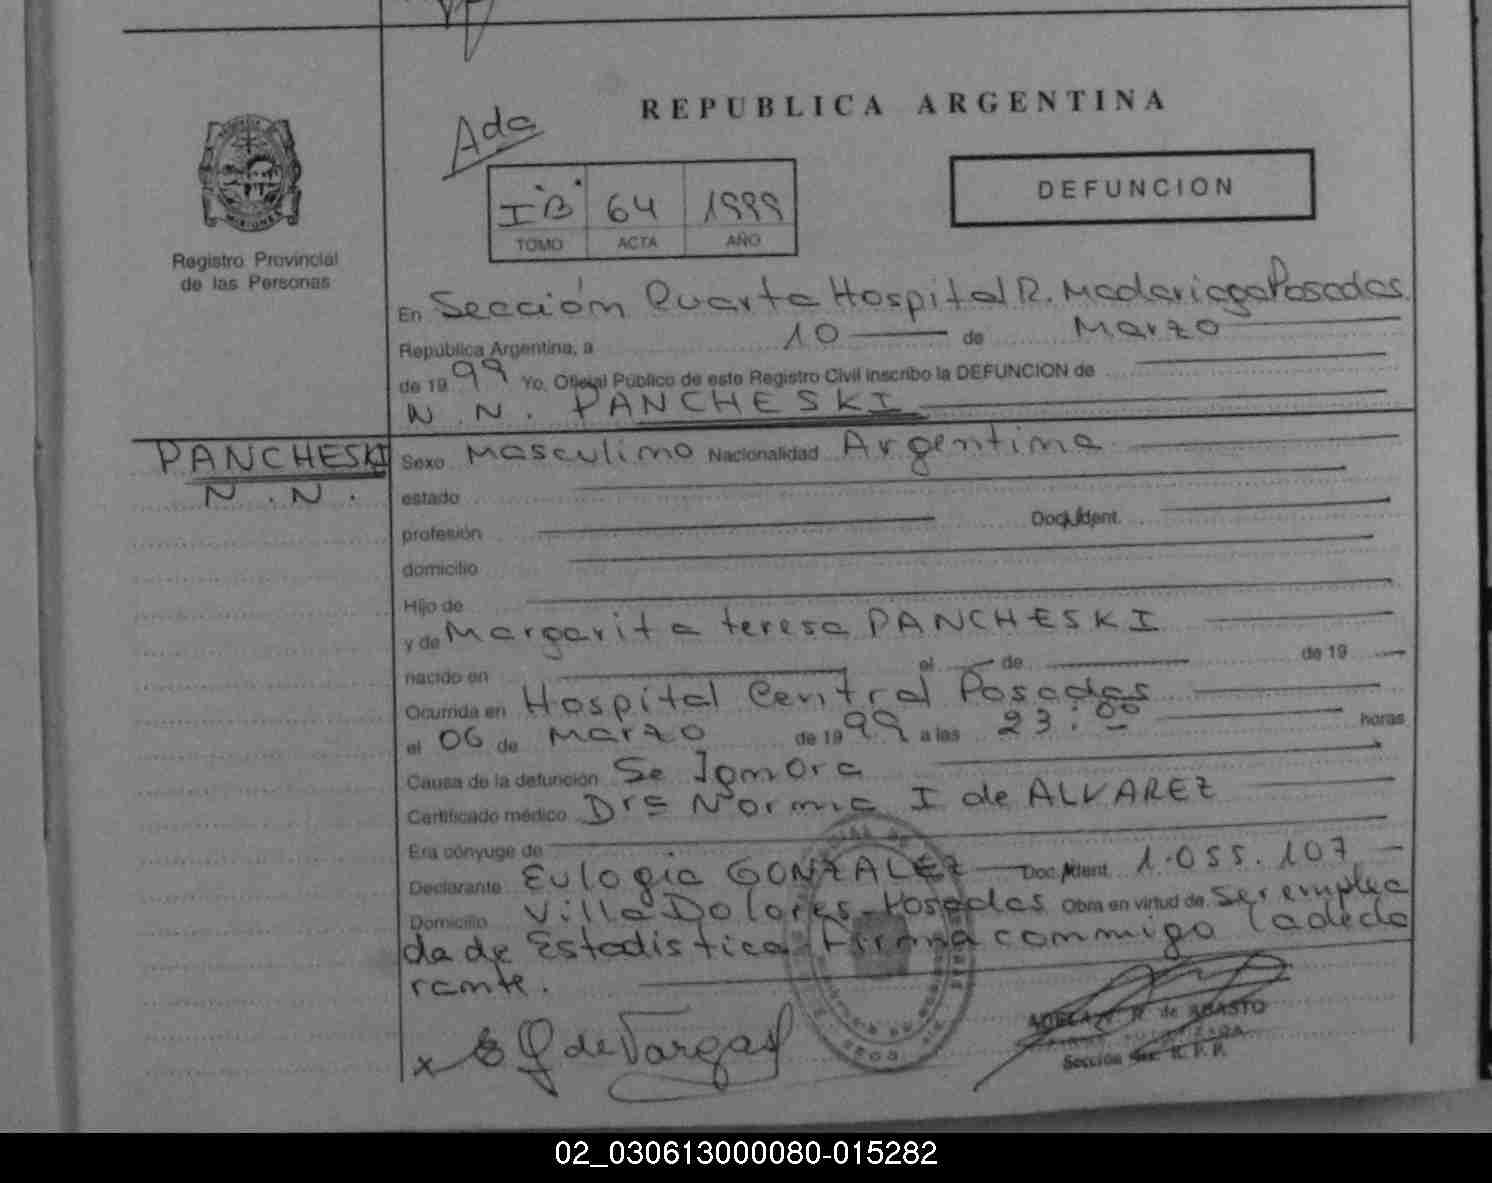 REPUBLICA ARGENTINA
Ada
DEFUNCION
I "B" 64 1999
TOMO ACTA AÑO
Registro Provincial
de las Personas
En Sección Cuarta Hospital R. Madariaga Posadas.
República Argentina, a 10 de Marzo
de 1999 Yo, Oficial Público de este Registro Civil inscribo la DEFUNCION de
N. N. PANCHESKI
PANCHESKI
N. N.
Sexo Masculino Nacionalidad Argentina
estado
profesión Doc. Ident.
domicilio
Hijo de
y de Margarita teresa PANCHESKI
nacido en el de de 19
Ocurrida en Hospital Central Posadas
el 06 de Marzo de 1999 a las 23:00 horas
Causa de la defunción Se Ignora
Certificado médico Dra Norma I de ALVAREZ
Era cónyuge de
Declarante Eulogia GONZALEZ Doc. Ident. 1.055.107
Domicilio Villa Dolores-Posadas Obra en virtud de Ser emplea
da de Estadística-Firma conmigo la decla
rante.
x E G de Vargas
ADELA R. de ABASTO
Sección R. P. P.
02_030613000080-015282